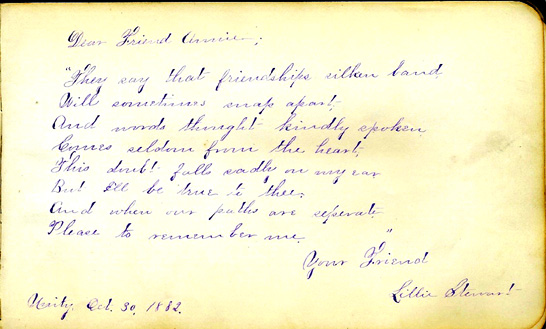 Dear Friend Annie;
"They say that friendships silken band,
Will sometimes snap apart,-
And words thought kindly spoken
Comes seldom from the heart;
This doubt falls sadly on my ear
But I'll be true to thee;
And when our paths are seperate
Please to remember me."
Your Friend
Lillie Stewart
Unity, Oct. 30, 1882.